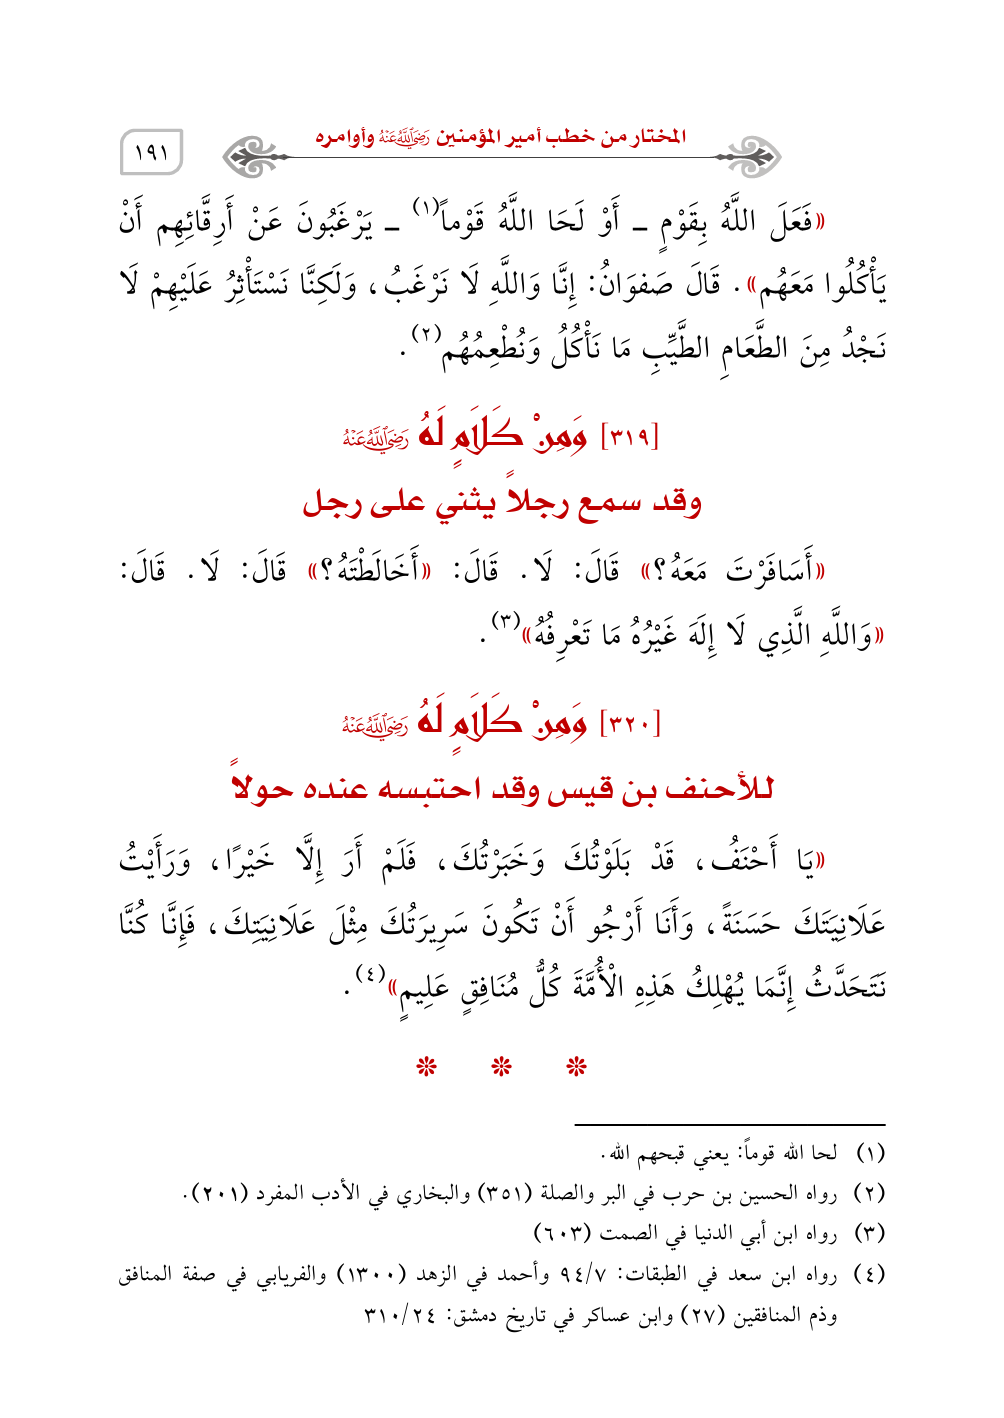 المختار من خطب أمير المؤمنين رَضِيَ اللَّهُ عَنْهُ وأوامره
١٩١
«فَعَلَ اللَّهُ بِقَوْمٍ ـ أَوْ لَحَا اللَّهُ قَوْماً(١) ـ يَرْغَبُونَ عَنْ أَرِقَّائِهِم أَنْ
يَأْكُلُوا مَعَهُم». قَالَ صَفوَانُ: إِنَّا وَاللَّهِ لَا نَرْغَبُ، وَلَكِنَّا نَسْتَأْثِرُ عَلَيْهِمْ لَا
نَجْدُ مِنَ الطَّعَامِ الطَّيِّبِ مَا نَأْكُلُ وَنُطْعِمُهُم(٢).
[٣١٩] وَمِنْ كَلَامٍ لَهُ رَضِيَ اللَّهُ عَنْهُ
وقد سمع رجلاً يثني على رجل
«أَسَافَرْتَ مَعَهُ؟» قَالَ: لَا. قَالَ: «أَخَالَطْتَهُ؟» قَالَ: لَا. قَالَ:
«وَاللَّهِ الَّذِي لَا إِلَهَ غَيْرُهُ مَا تَعْرِفُهُ»(٣).
[٣٢٠] وَمِنْ كَلَامٍ لَهُ رَضِيَ اللَّهُ عَنْهُ
للأحنف بن قيس وقد احتبسه عنده حولاً
«يَا أَحْنَفُ، قَدْ بَلَوْتُكَ وَخَبَرْتُكَ، فَلَمْ أَرَ إِلَّا خَيْرًا، وَرَأَيْتُ
عَلَانِيَتَكَ حَسَنَةً، وَأَنَا أَرْجُو أَنْ تَكُونَ سَرِيرَتُكَ مِثْلَ عَلَانِيَتِكَ، فَإِنَّا كُنَّا
نَتَحَدَّثُ إِنَّمَا يُهْلِكُ هَذِهِ الْأُمَّةَ كُلُّ مُنَافِقٍ عَلِيمٍ»(٤).
(١) لحا الله قوماً: يعني قبحهم الله.
(٢) رواه الحسين بن حرب في البر والصلة (٣٥١) والبخاري في الأدب المفرد (٢٠١).
(٣) رواه ابن أبي الدنيا في الصمت (٦٠٣)
(٤) رواه ابن سعد في الطبقات: ٩٤/٧ وأحمد في الزهد (١٣٠٠) والفريابي في صفة المنافق
وذم المنافقين (٢٧) وابن عساكر في تاريخ دمشق: ٣١٠/٢٤